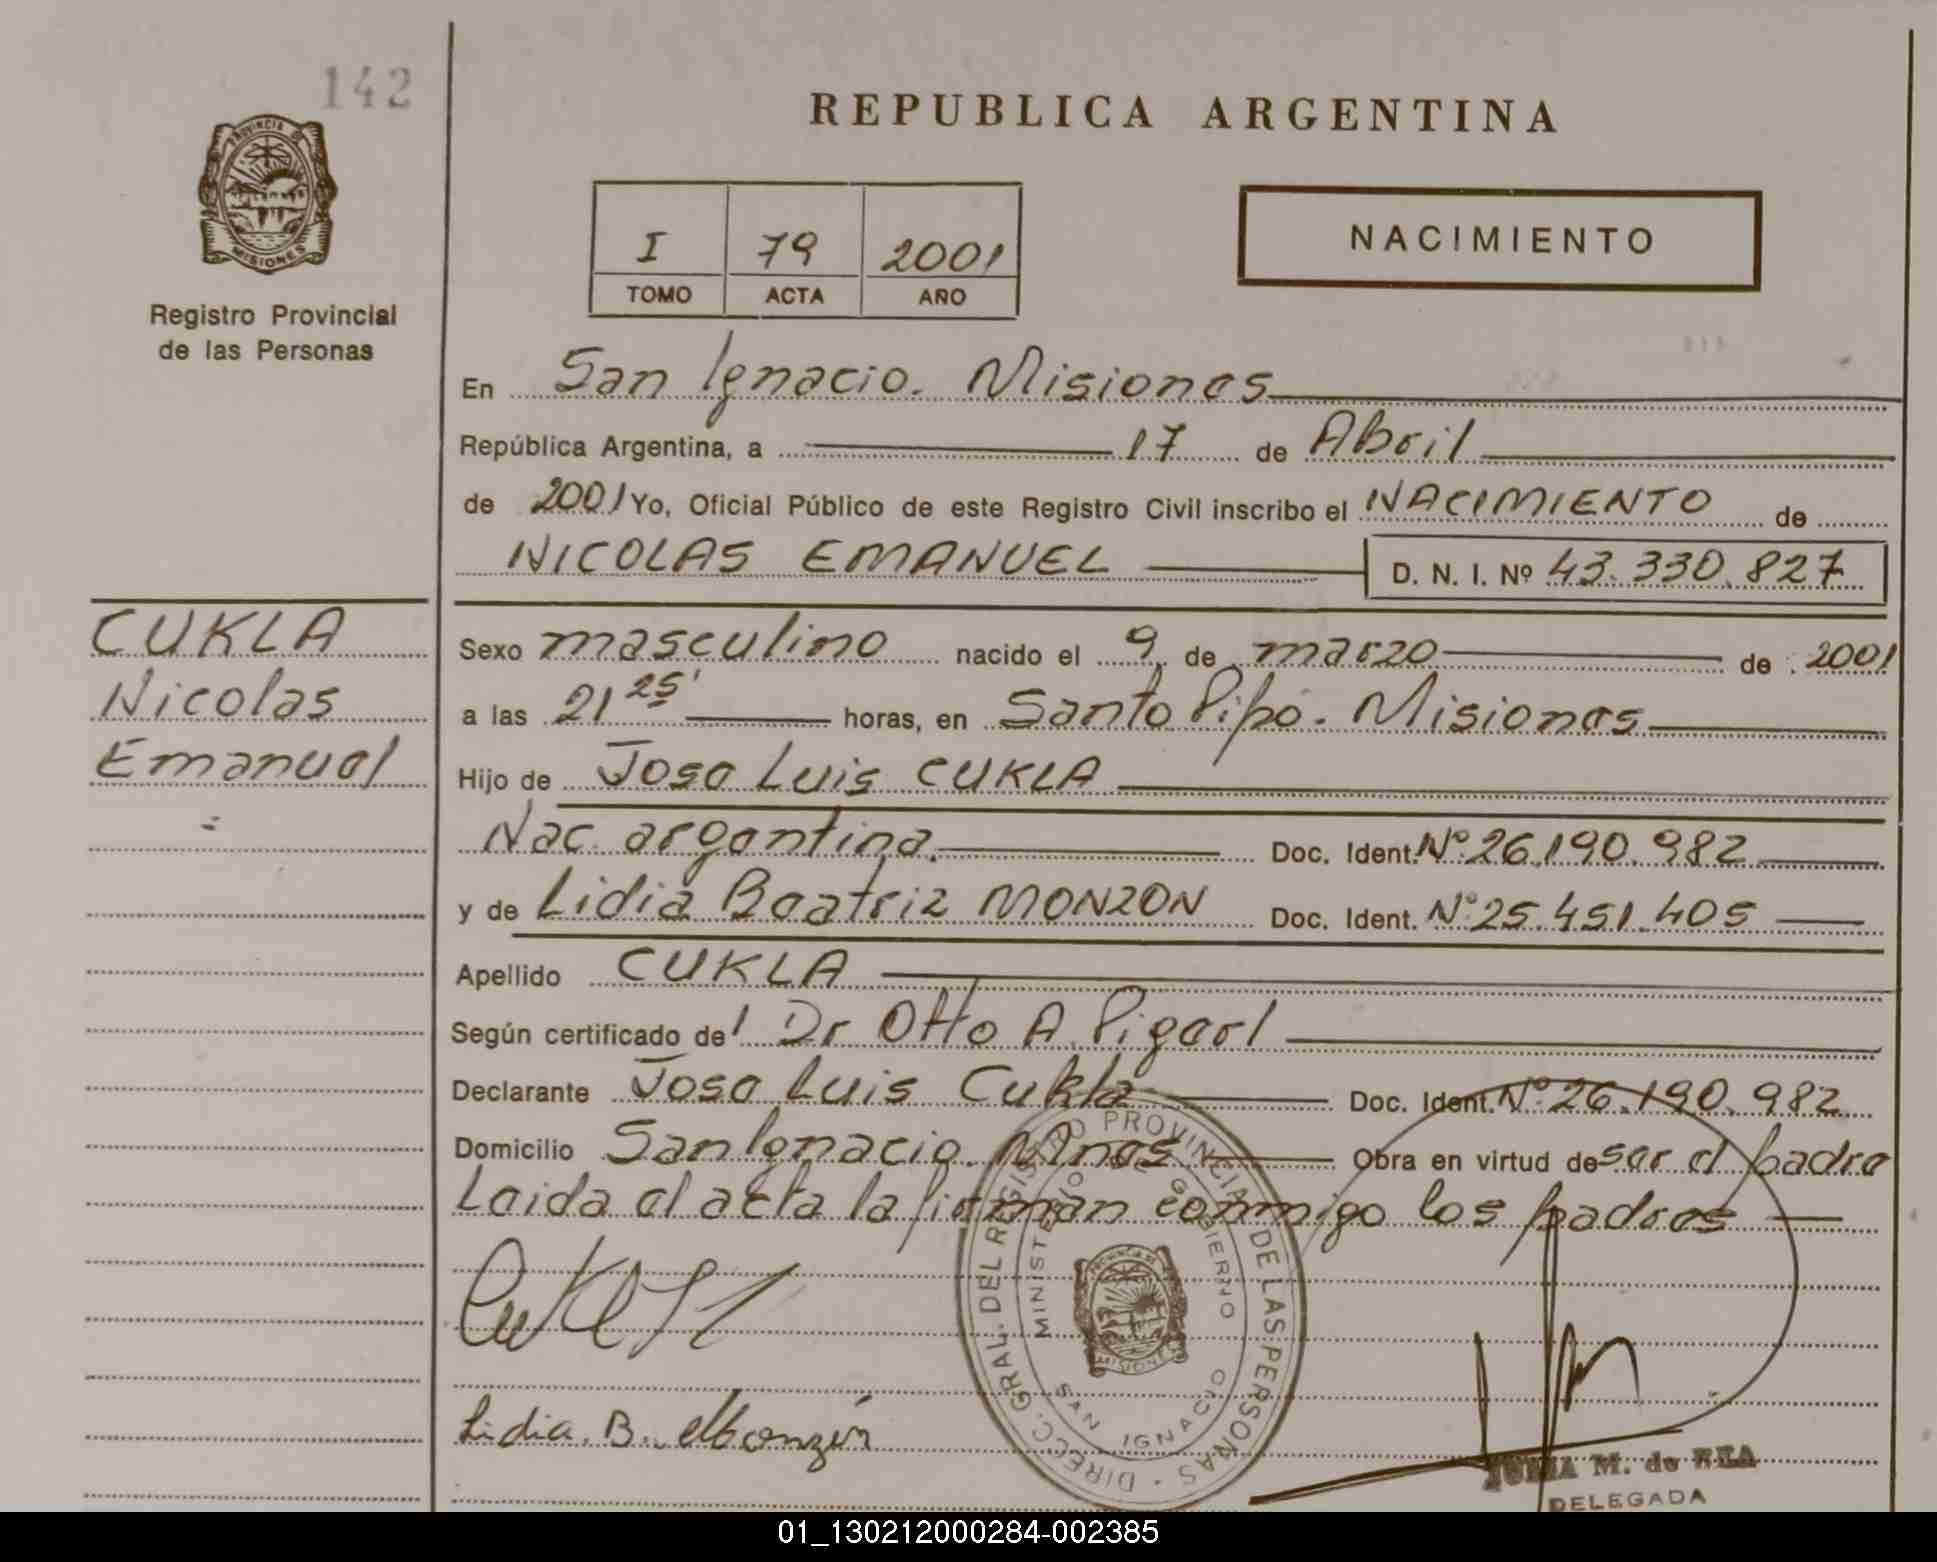 142
REPUBLICA ARGENTINA
PROVINCIA DE
MISIONES
Registro Provincial
de las Personas
I 79 2001
TOMO ACTA AÑO
NACIMIENTO
En San Ignacio. Misiones
República Argentina, a 17 de Abril
de 2001 Yo, Oficial Público de este Registro Civil inscribo el NACIMIENTO de
NICOLAS EMANUEL D. N. I. Nº 43.330.827
CUKLA
Nicolas
Emanuel
Sexo masculino nacido el 9 de marzo de 2001
a las 21 25' horas, en Santo Pipó. Misiones
Hijo de Jose Luis CUKLA
Nac. argentina. Doc. Ident. Nº 26.190.982
y de Lidia Beatriz MONZON Doc. Ident. Nº 25.451.405
Apellido CUKLA
Según certificado del Dr Otto A. Pigerl
Declarante Jose Luis Cukla Doc. Ident. Nº 26.190.982
Domicilio San Ignacio. Mnes Obra en virtud de ser el padre
Leida el acta la firman conmigo los padres
DIRECC. GRAL. DEL REGISTRO PROVINCIAL DE LAS PERSONAS
MINISTERIO DE GOBIERNO
MISIONES
SAN IGNACIO
Lidia. B. Monzón
M. de
DELEGADA
01_130212000284-002385